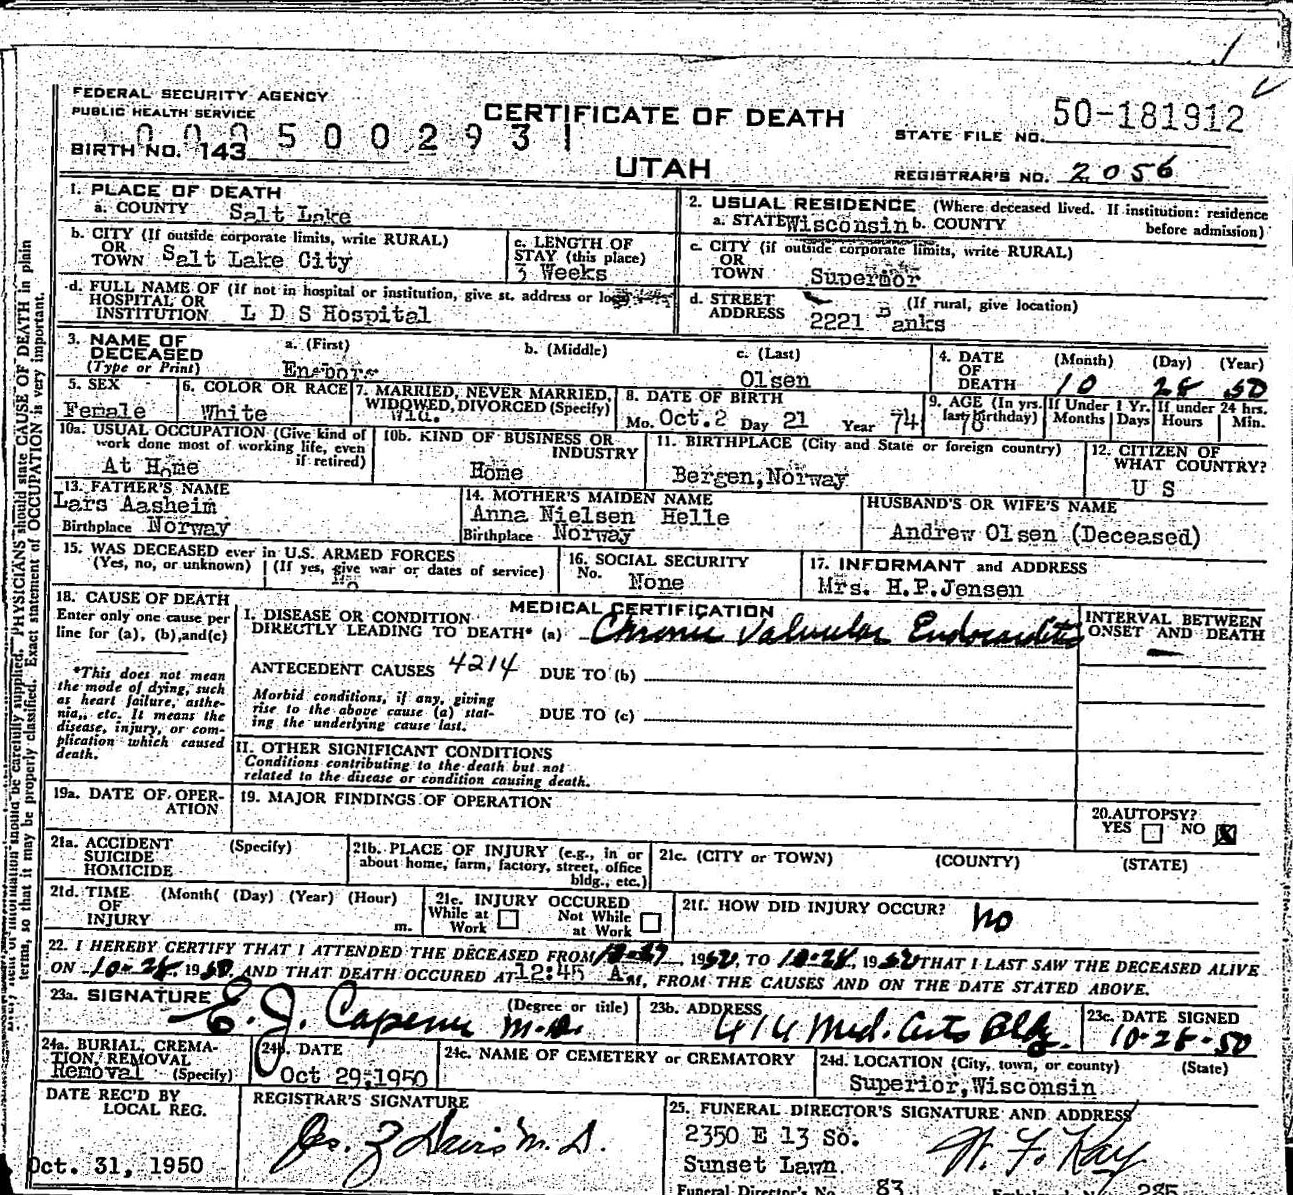 FEDERAL SECURITY AGENCY
PUBLIC HEALTH SERVICE
CERTIFICATE OF DEATH
UTAH
STATE FILE NO. 50-181912
0005002931
BIRTH NO. 143
REGISTRAR'S NO. 2056
1. PLACE OF DEATH
a. COUNTY Salt Lake
2. USUAL RESIDENCE (Where deceased lived. If institution: residence before admission)
a. STATE Wisconsin b. COUNTY
b. CITY (If outside corporate limits, write RURAL)
OR TOWN Salt Lake City
c. LENGTH OF STAY (this place)
3 Weeks
c. CITY (if outside corporate limits, write RURAL)
OR TOWN Superior
d. FULL NAME OF (If not in hospital or institution, give st. address or
HOSPITAL OR INSTITUTION L D S Hospital
d. STREET ADDRESS (If rural, give location)
2221 Banks
3. NAME OF DECEASED
(Type or Print)
a. (First)
b. (Middle)
c. (Last)
Olsen
4. DATE OF DEATH
(Month) (Day) (Year)
10 28 50
5. SEX
Female
6. COLOR OR RACE
White
7. MARRIED, NEVER MARRIED, WIDOWED, DIVORCED (Specify)
Wid.
8. DATE OF BIRTH
Mo. Oct. 2 Day 21 Year 74
9. AGE (In yrs. last birthday)
76
If Under 1 Yr.
Months Days
If under 24 hrs.
Hours Min.
10a. USUAL OCCUPATION (Give kind of work done most of working life, even if retired)
At Home
10b. KIND OF BUSINESS OR INDUSTRY
Home
11. BIRTHPLACE (City and State or foreign country)
Bergen, Norway
12. CITIZEN OF WHAT COUNTRY?
U S
13. FATHER'S NAME
Lars Aasheim
Birthplace Norway
14. MOTHER'S MAIDEN NAME
Anna Nielsen Helle
Birthplace Norway
HUSBAND'S OR WIFE'S NAME
Andrew Olsen (Deceased)
15. WAS DECEASED ever in U.S. ARMED FORCES
(Yes, no, or unknown) (If yes, give war or dates of service)
No
16. SOCIAL SECURITY
No. None
17. INFORMANT and ADDRESS
Mrs. H.P.Jensen
18. CAUSE OF DEATH
Enter only one cause per
line for (a), (b), and(c)
*This does not mean
the mode of dying, such
as heart failure, asthe-
nia,, etc. It means the
disease, injury, or com-
plication which caused
death.
MEDICAL CERTIFICATION
I. DISEASE OR CONDITION
DIRECTLY LEADING TO DEATH* (a) Chronic Valvular Endocarditis
INTERVAL BETWEEN
ONSET AND DEATH
—
ANTECEDENT CAUSES 4214 DUE TO (b)
Morbid conditions, if any, giving
rise to the above cause (a) stat-
ing the underlying cause last.
DUE TO (c)
II. OTHER SIGNIFICANT CONDITIONS
Conditions contributing to the death but not
related to the disease or condition causing death.
19a. DATE OF OPER-
ATION
19. MAJOR FINDINGS OF OPERATION
20. AUTOPSY?
YES NO X
21a. ACCIDENT
SUICIDE
HOMICIDE
(Specify)
21b. PLACE OF INJURY (e.g., in or
about home, farm, factory, street, office
bldg., etc.)
21c. (CITY or TOWN) (COUNTY) (STATE)
21d. TIME
OF
INJURY
(Month( (Day) (Year) (Hour)
m.
21e. INJURY OCCURED
While at Work Not While at Work
21f. HOW DID INJURY OCCUR? no
22. I HEREBY CERTIFY THAT I ATTENDED THE DECEASED FROM 1950, TO 10-28, 1950 THAT I LAST SAW THE DECEASED ALIVE
ON 10-28, 1950, AND THAT DEATH OCCURED AT 12:45 A M, FROM THE CAUSES AND ON THE DATE STATED ABOVE.
23a. SIGNATURE (Degree or title)
E. J. M.D.
23b. ADDRESS
414 Med. Arts Bldg.
23c. DATE SIGNED
10-28-50
24a. BURIAL, CREMA-
TION, REMOVAL
Removal (Specify)
24b. DATE
Oct 29, 1950
24c. NAME OF CEMETERY or CREMATORY
24d. LOCATION (City, town, or county) (State)
Superior, Wisconsin
DATE REC'D BY
LOCAL REG.
Oct. 31, 1950
REGISTRAR'S SIGNATURE
25. FUNERAL DIRECTOR'S SIGNATURE AND ADDRESS
2350 E 13 So.
Sunset Lawn
Funeral Director's No. 83
285